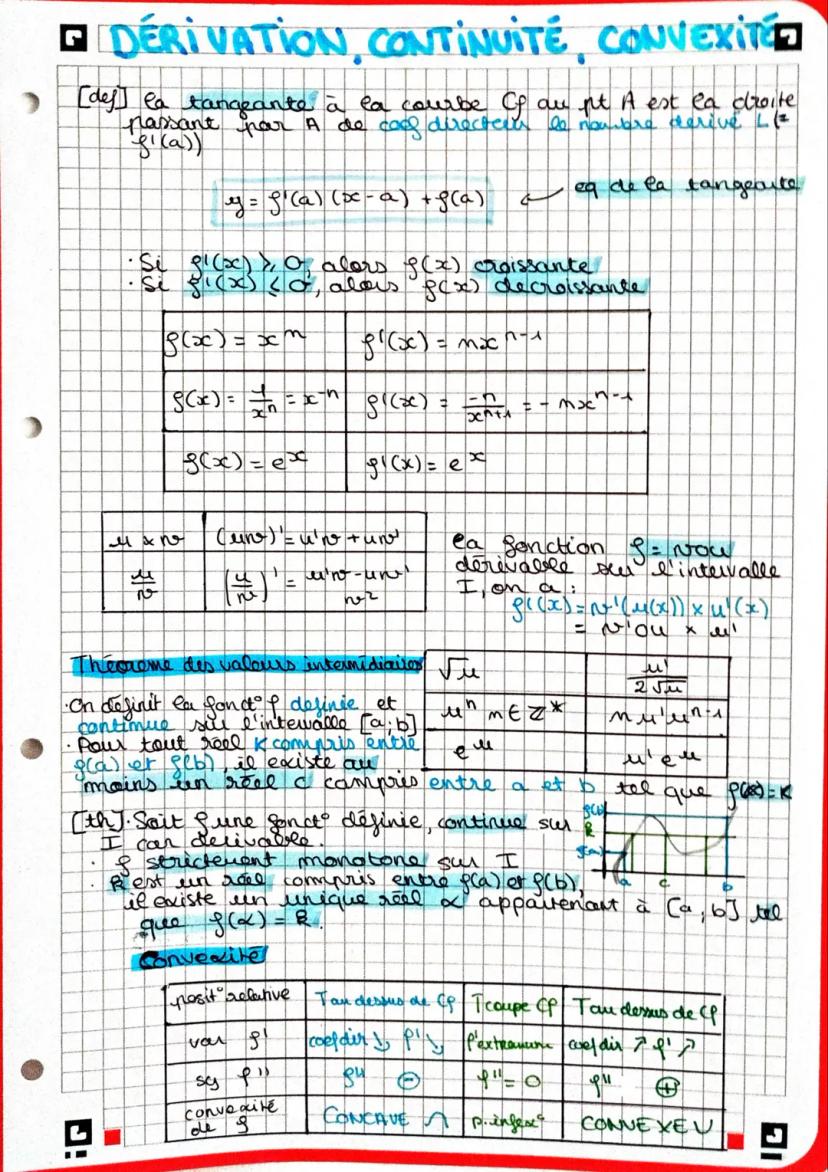 DÉRIVATION, CONTINUITÉ, CONVEXITÉ
[def] la tangeante à la courbe Cf au pt A est la droite
passant par A de coef directeur le nombre dérivé L (=
f'(a))
y = f'(a) (x-a) + f(a) ← eq de la tangeante
· Si f'(x) ≥ 0, alors f(x) croissante
· Si f'(x) ≤ 0, alors f(x) decroissante
f(x) = xⁿ f'(x) = nxⁿ⁻¹
f(x) = 1/xⁿ = x⁻ⁿ f'(x) = -n/xⁿ⁺¹ = - nxⁿ⁻¹
f(x) = eˣ f'(x) = eˣ
u × v (uv)' = u'v + uv'
u/v (u/v)' = u'v - uv'/v²
la fonction f = vou
dérivable sur l'intervalle
I, on a :
f'(x) = v'(u(x)) × u'(x)
= v'ou × u'
Théoreme des valeurs intermidiaires
√u u'/2√u
uⁿ n ∈ Z* nu'uⁿ⁻¹
eᵘ u'eᵘ
· On définit la fonct° f definie et
continue sur l'intervalle [a;b]
· Pour tout réel K compris entre
f(a) et f(b), il existe au
moins un réel c compris entre a et b tel que = K
[th] · Soit f une fonct° définie, continue sur
I car derivable.
· f strictement monotone sur I
· k est un réel compris entre f(a) et f(b),
il existe un unique réel α appartenant à [a;b] tel
que f(α) = k.
f(b)
k
f(a)
a c b
Convexité
posit° relative T au dessus de Cf T coupe Cf T au dessus de Cf
var f' coef dir ↘ f' ↘ f' extremum coef dir ↗ f' ↗
sg f'' f'' ⊖ f'' = 0 f'' ⊕
convexité
de f CONCAVE ∩ p. inflex° CONVEXE ∪